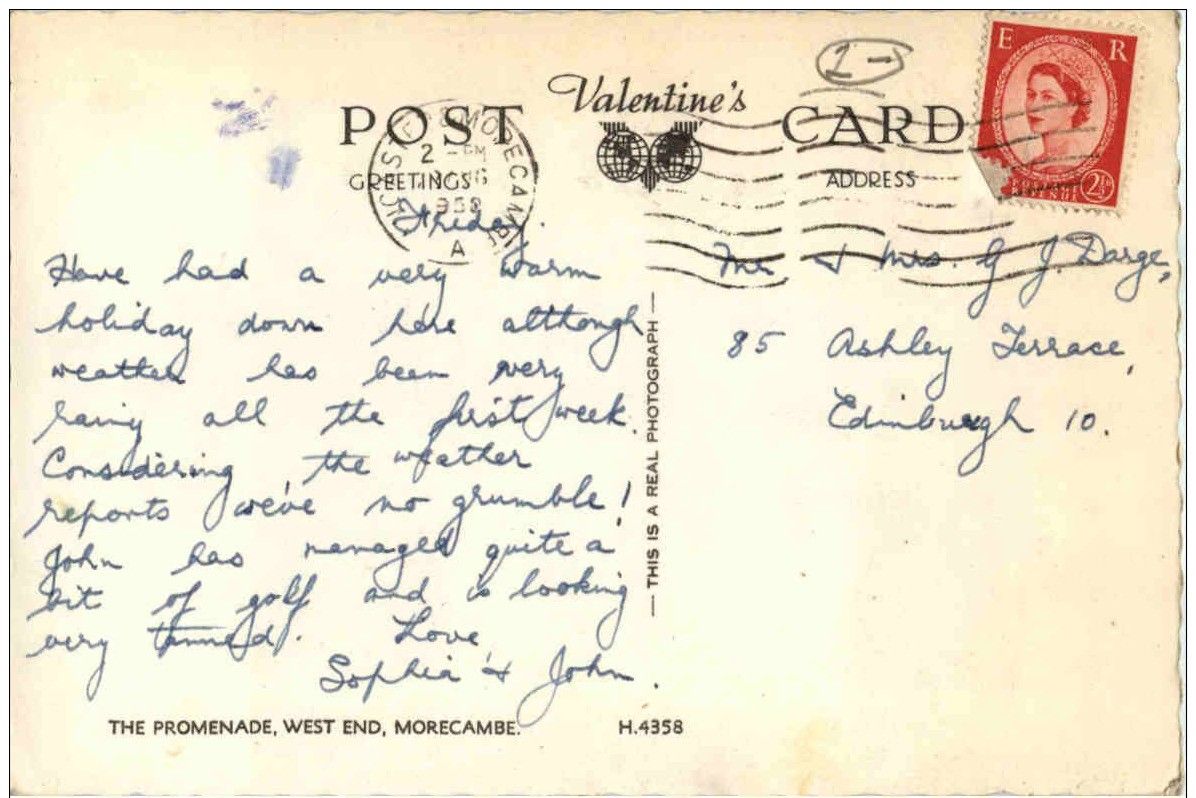 1-
Valentine's
POST CARD
E R
2½D
MORECAMBE
2 - PM
A
GREETINGS
ADDRESS
Friday.
Have had a very warm
holiday down here although
weather has been very
rainy all the first week.
Considering the weather
reports we've no grumble!
John has managed quite a
bit of golf and is looking
very tanned. Love
Sophia & John.
Mr. & Mrs. G J. Darge,
85 Ashley Terrace,
Edinburgh 10.
— THIS IS A REAL PHOTOGRAPH —
THE PROMENADE, WEST END, MORECAMBE.
H.4358